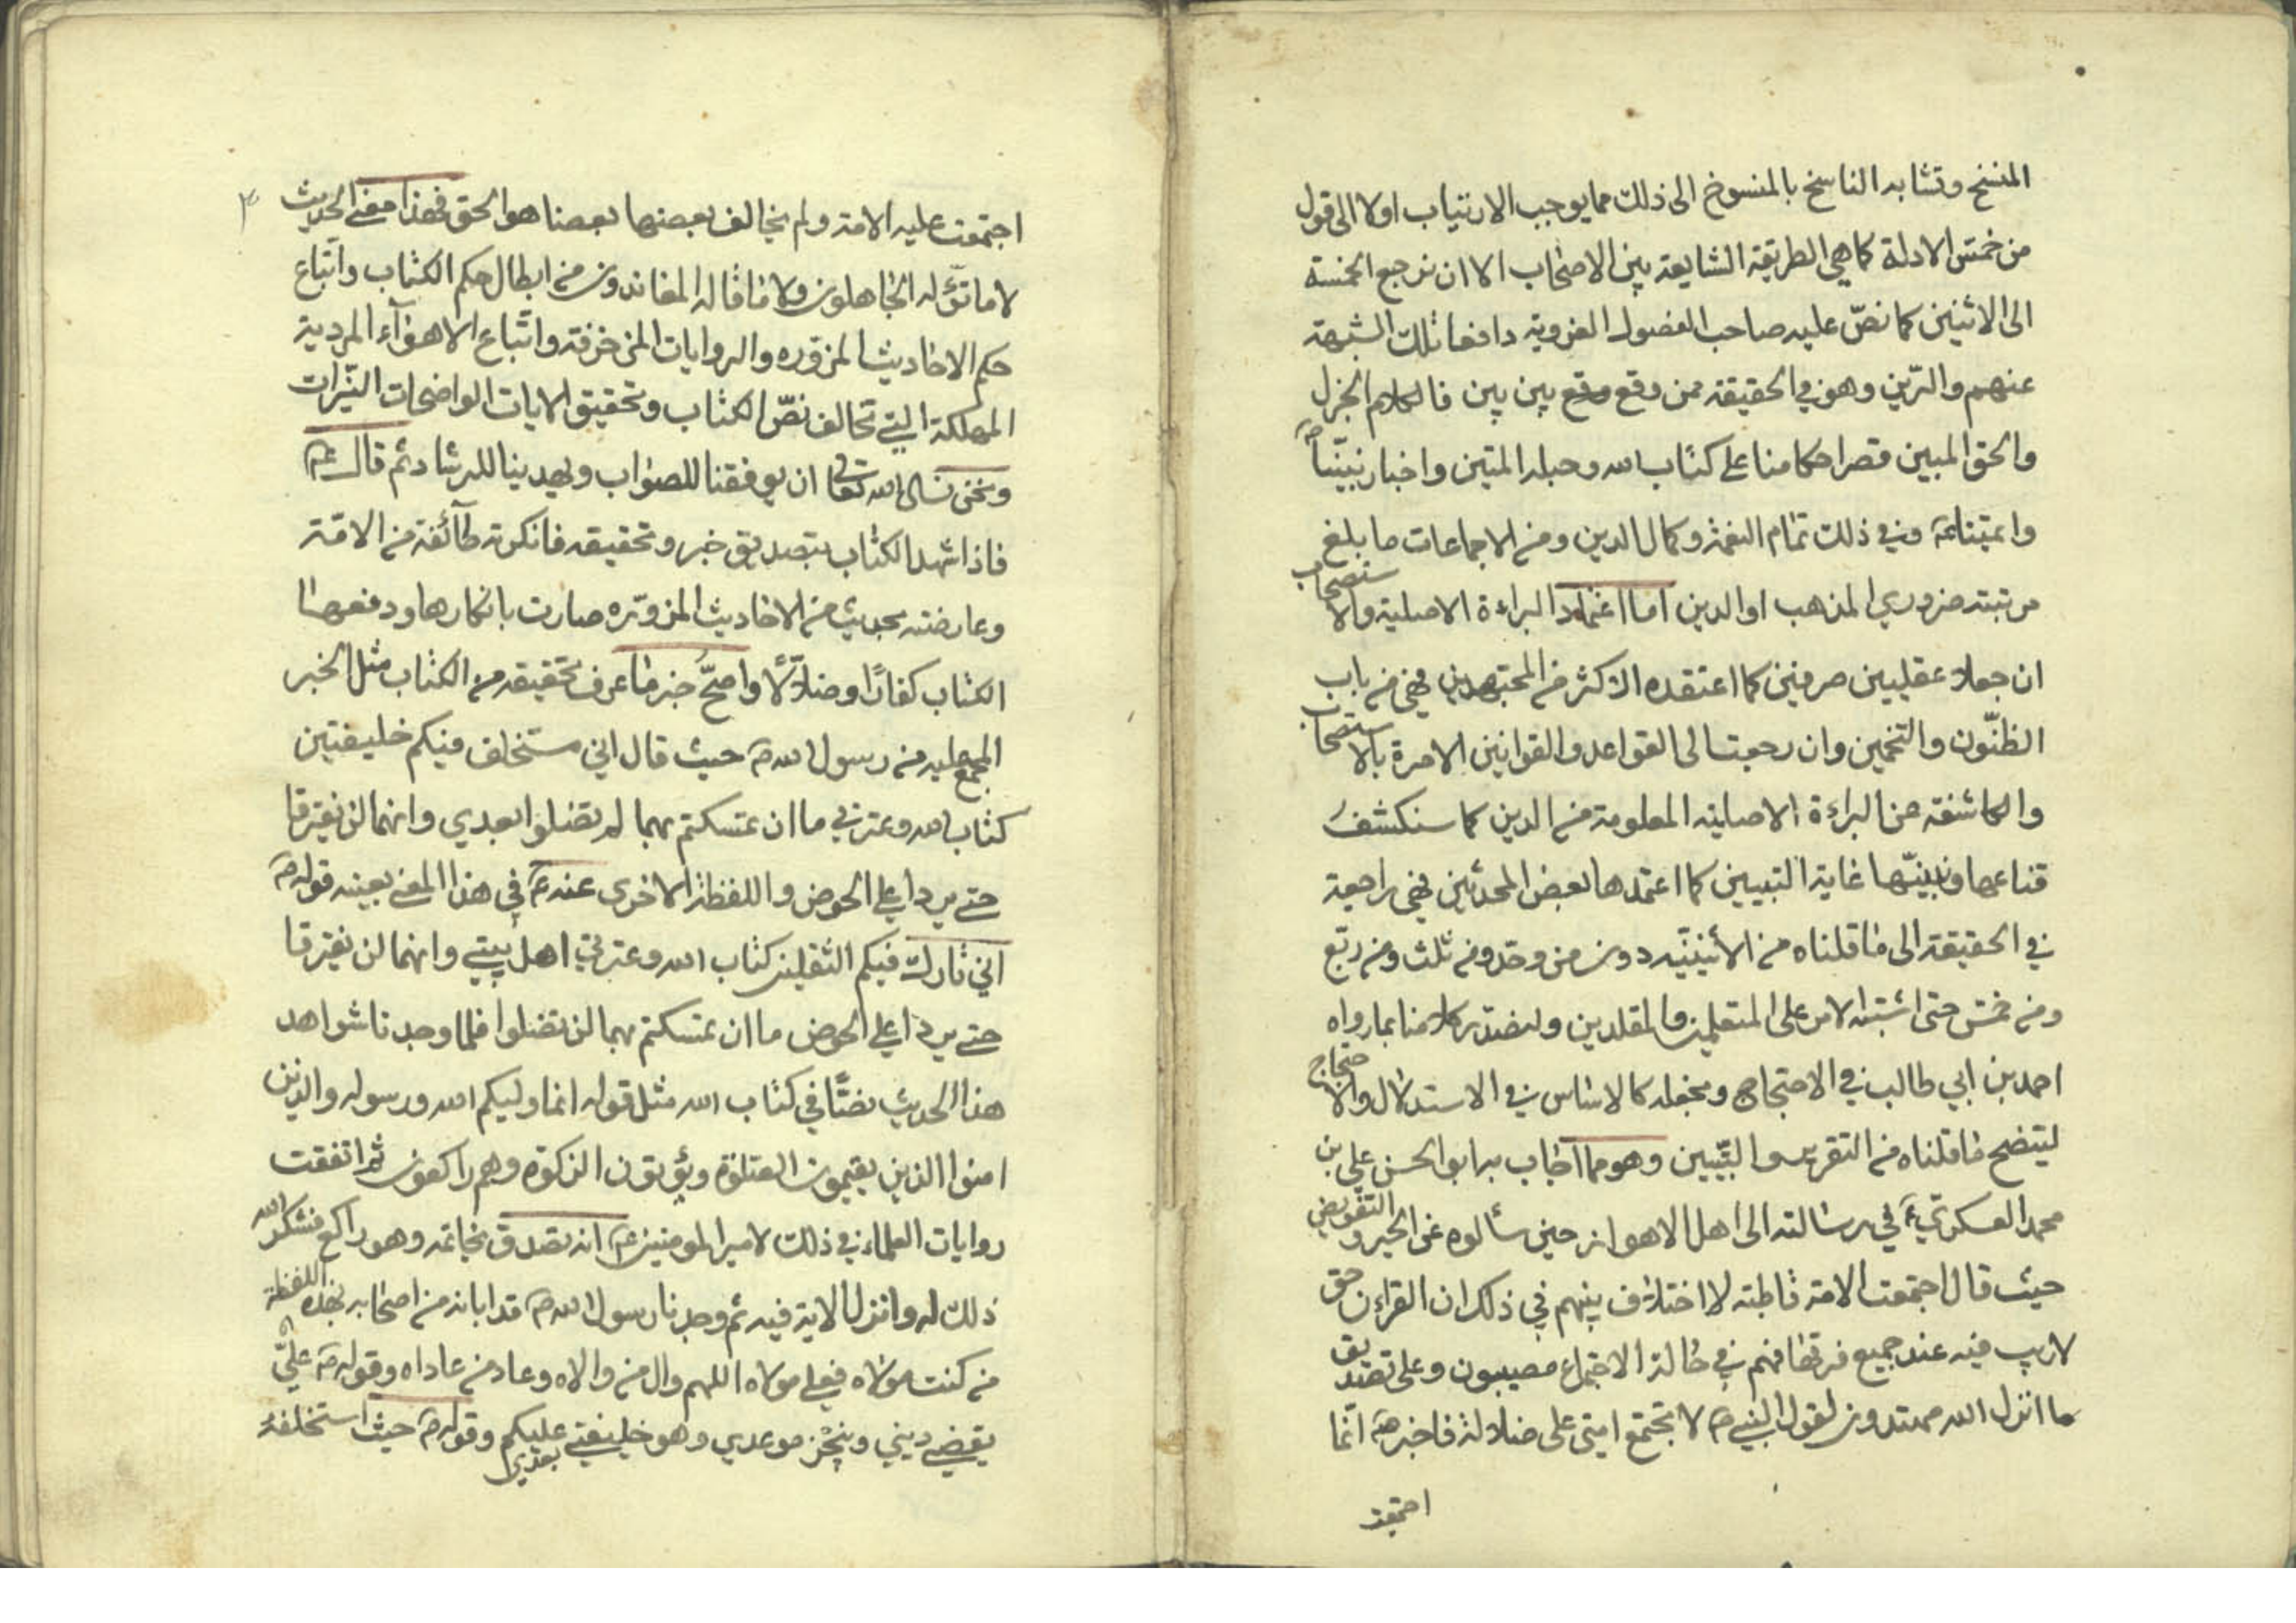 المنسخ وتشابه الناسخ بالمنسوخ الى ذلك مما يوجب الارتياب اولا الى قول
من خمس الادلة كما هي الطريقة الشايعة بين الاصحاب الا ان نرجع الخمسة
الى الاثنين كما نصّ عليه صاحب الفصول الغروية دافعا تلك الشبهة
عنهم والرّين وهو في الحقيقة ممن وقع موقع بين بين فالكلام الجزل
والحق المبين قصر احكامنا على كتاب الله وحبله المتين واخبار نبيّنا ص
واعتنا عم وفي ذلك تمام النعمة وكمال الدين ومن الاجماعات ما بلغ
مرتبته ضروري المذهب او الدين اما اعتماد البراءة الاصلية والاستصحاب
ان جعلا عقليين صرفين كما اعتقده الاكثر من المجتهدين فهي من باب
الظنّون والتخمين وان رجعت الى القواعد والقوانين الامرة بالاستصحاب
والكاشفة عن البراءة الاصلية المعلومة من الدين كما سنكشف
قناعها ونبيّنها غاية التبيين كما اعتمدها بعض المحدثين فهي راجعة
في الحقيقة الى ما قلناه من الأثنينيّه دون من وحّد ومن ثلّث ومن ربّع
ومن خمّس حتى اشتبه الامر على المتعلمين والمقلدين ولنصدّر كلامنا بما رواه
احمد بن ابي طالب في الاحتجاج ونجعله كالاساس في الاستدلال والاحتجاج
ليتضح ما قلناه من التقرير والتبيين وهو مما اجاب به ابو الحسن علي بن
محمد العسكري ع في رسالته الى اهل الاهواز حين سألوه عن الجبر والتفويض
حيث قال اجتمعت الامة قاطبة لا اختلاف بينهم في ذلك ان القران حق
لاريب فيه عند جميع فرقها فهم في حالة الاجتماع مصيبون وعلى تصديق
ما انزل الله مهتدون لقول النبي ص لا تجتمع امتي على ضلالة فاخبر ص انما
اجتمعت
اجتمعت عليه الامة ولم يخالف بعضها بعضا هو الحق فهذا معنى الحديث
لا ما تؤّله الجاهلون ولا ما قاله المعاندون من ابطال حكم الكتاب واتباع
حكم الاحاديث المزوره والروايات المزخرفة واتباع الاهوآء المردية
المهلكة التي تخالف نصّ الكتاب وتحقيق الايات الواضحات النيّرات
ونحن نسال الله تعالى ان يوفقنا للصواب ويهدينا للرشاد ثم قال عم
فاذا شهد الكتاب بتصديق خبر وتحقيقه فانكرته طآئفة من الامّة
وعارضته بحديث من الاحاديث المزوّره صارت بانكارها ودفعها
الكتاب كفارًا وضلاّلًا واصحّ خبر ما عرف تحقيقه من الكتاب مثل الخبر
المجمع عليه من رسول الله ص حيث قال اني مستخلف فيكم خليفتين
كتاب الله وعترتي ما ان تمسكتم بهما لم تضلوا بعدي وانهما لن يفترقا
حتى يردا على الحوض واللفظة الاخرى عنه ع في هذا المعنى بعينه قوله ص
اني تارك فيكم الثقلين كتاب الله وعترتي اهل بيتي وانهما لن يفترقا
حتى يردا على الحوض ما ان تمسكتم بهما لن تضلوا فلما وجدنا شواهد
هذا الحديث نصًّا في كتاب الله مثل قوله انما وليكم الله ورسوله والذين
امنوا الذين يقيمون الصلوة ويؤتون الزكوة وهم راكعون ثم اتفقت
روايات العلماء في ذلك لامير المومنين عم انه تصدق بخاتمه وهو راكع فشكر الله
ذلك له وانزل الاية فيه ثم وجدنا رسول الله ص قد ابانه من اصحابه بهذه اللفظة
من كنت مولاه فعلي مولاه اللهم وال من والاه وعاد من عاداه وقوله ص عليّ
يقضي ديني وينجز موعدي وهو خليفتي عليكم بعدي وقوله ص حيث استخلفه